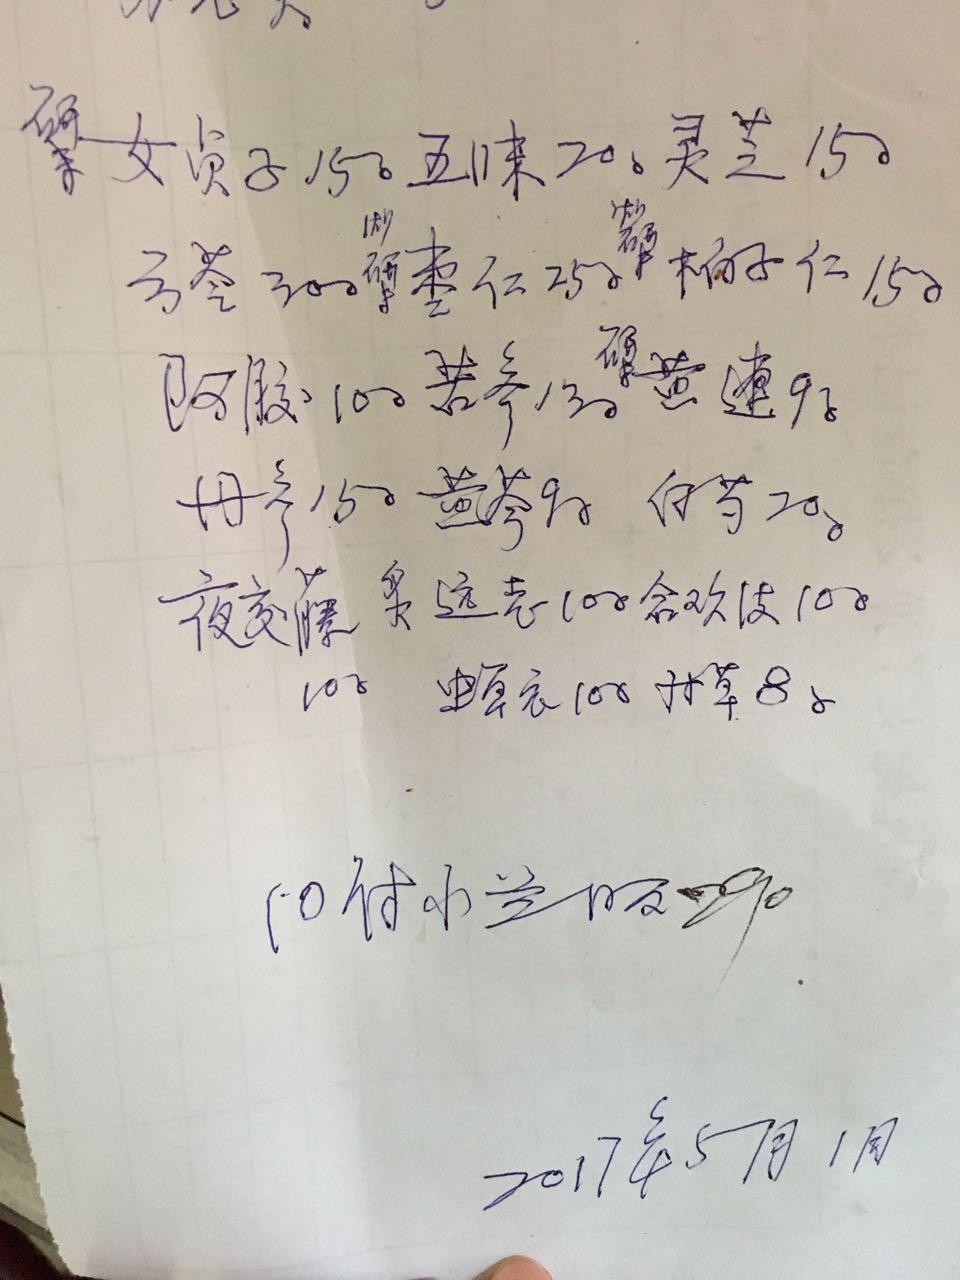 女贞子15g 五味20g 灵芝15g
云苓30g 枣仁25g 柏子仁15g
阿胶10g 苦参13g 黄連9g
丹参15g 黄芩9g 白芍20g
夜交藤 炙远志10g 合欢皮10g
10g 虫草衣10g 甘草8g
10付水煎服
2017年5月1日